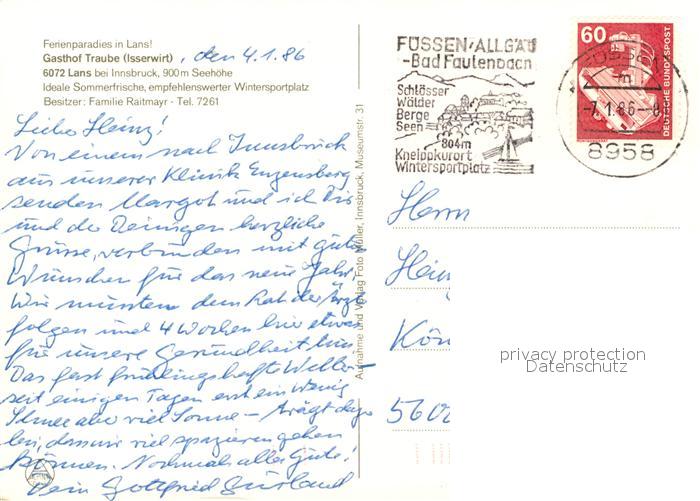 Ferienparadies in Lans!
Gasthof Traube (Isserwirt), den 4.1.86
6072 Lans bei Innsbruck, 900 m Seehöhe
Ideale Sommerfrische, empfehlenswerter Wintersportplatz
Besitzer: Familie Raitmayr - Tel. 7261
Lieber Heinz!
Von einem nach Innsbruck
aus unserer Klinik Enzensberg
senden Margot und ich Dir
und den Deinigen herzliche
Grüsse, verbunden mit guten
Wünschen für das neue Jahr.
Wir mussten dem Rat der Ärzte
folgen und 4 Wochen hier etwas
für unsere Gesundheit tun.
Das fast frühlingshafte Wetter -
seit einigen Tagen erst ein wenig
Schnee aber viel Sonne - trägt dazu
bei, dass wir viel spazieren gehen
können. Nochmals alles Gute!
Dein Gottfried
Aufnahme und Verlag Foto Müller, Innsbruck, Museumstr. 31
FÜSSEN/ALLGÄU
-Bad Faulenbach
Schlösser
Wälder
Berge
Seen
804m
Kneippkurort
Wintersportplatz
60
DEUTSCHE BUNDESPOST
FÜSSEN
m
-7.1.86-8
8958
Herrn
Hein
Kön
5602
privacy protection
Datenschutz